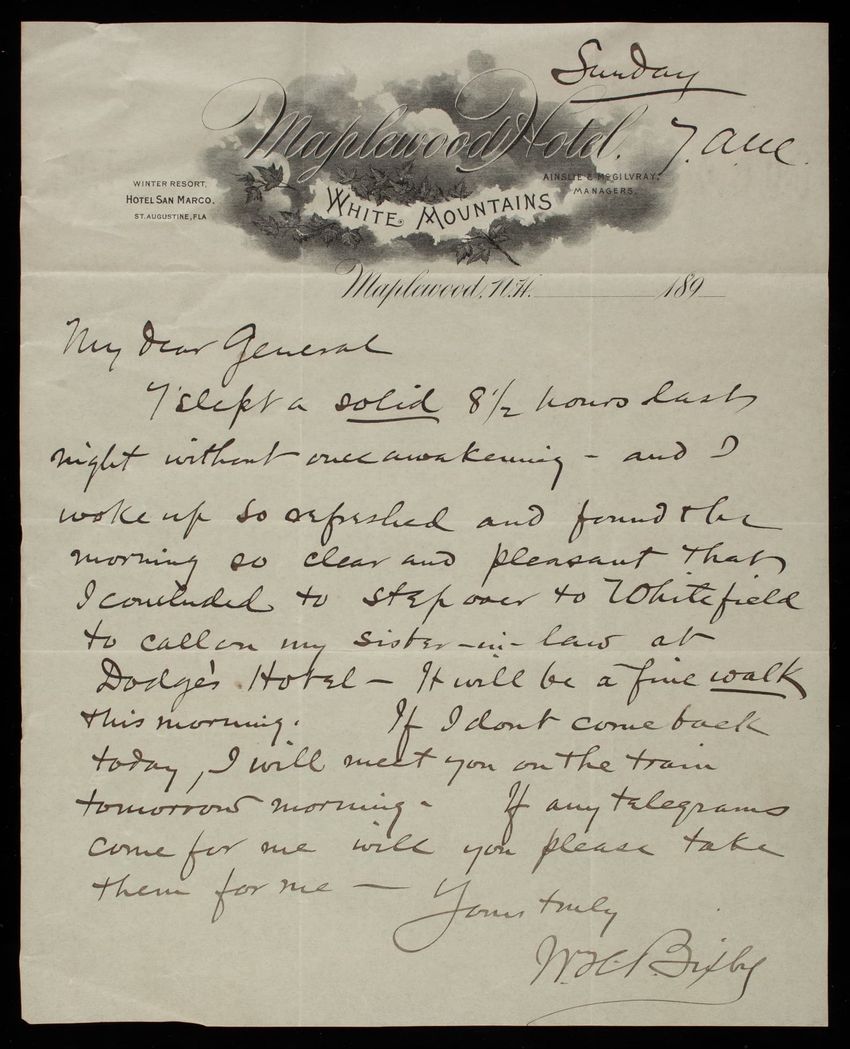 Sunday
Maplewood Hotel.
7. a.m.
WINTER RESORT,
HOTEL SAN MARCO.
ST. AUGUSTINE, FLA
AINSLIE & McGILVRAY,
MANAGERS.
WHITE MOUNTAINS
Maplewood, N.H. 189
My dear General
I slept a solid 8 1/2 hours last
night without once awakening - and I
woke up so refreshed and found the
morning so clear and pleasant that
I concluded to step over to Whitefield
to call on my sister-in-law at
Dodge's Hotel - It will be a fine walk
this morning. If I dont come back
today, I will meet you on the train
tomorrow morning. If any telegrams
come for me will you please take
them for me -
Yours truly
W.H. Bixby